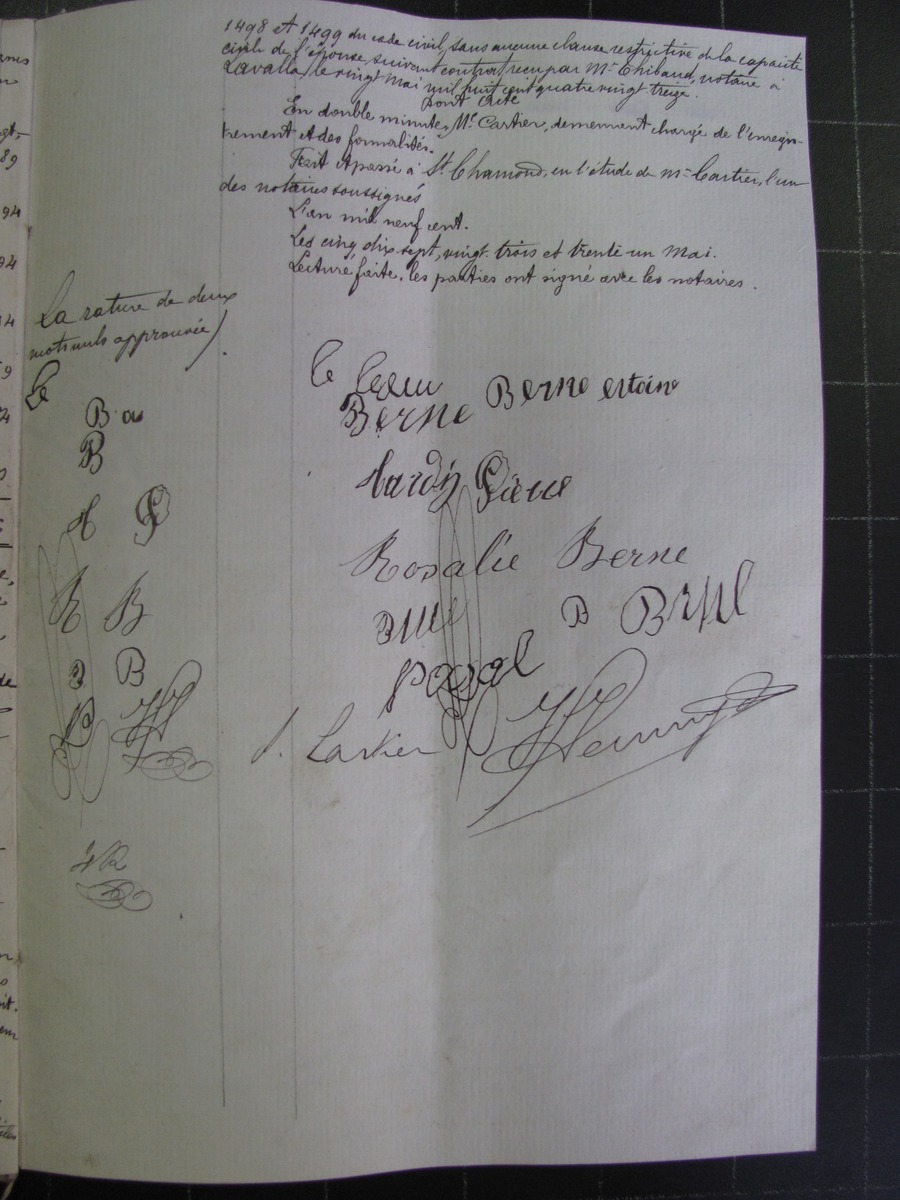 1498 et 1499 du code civil, sans aucune clause restrictive de la capacité
civile de l'épouse, suivant contrat reçu par Mᵉ Thibaud, notaire à
Lavalla, le vingt mai mil huit cent quatre vingt treize.
Dont acte
En double minute, Mᵉ Cartier, demeurant chargé de l'enregis-
trement et des formalités.
Fait et passé à St Chamond, en l'étude de Mᵉ Cartier, l'un
des notaires soussignés
L'an mil neuf cent.
Les cinq, dix sept, vingt trois et trente un Mai.
Lecture faite, les parties ont signé avec les notaires.
La rature de deux
mots nuls approuvée
Berne Berne
B
B
Hardy Pierre
H P
Rosalie Berne
R B
B
B
J. Cartier